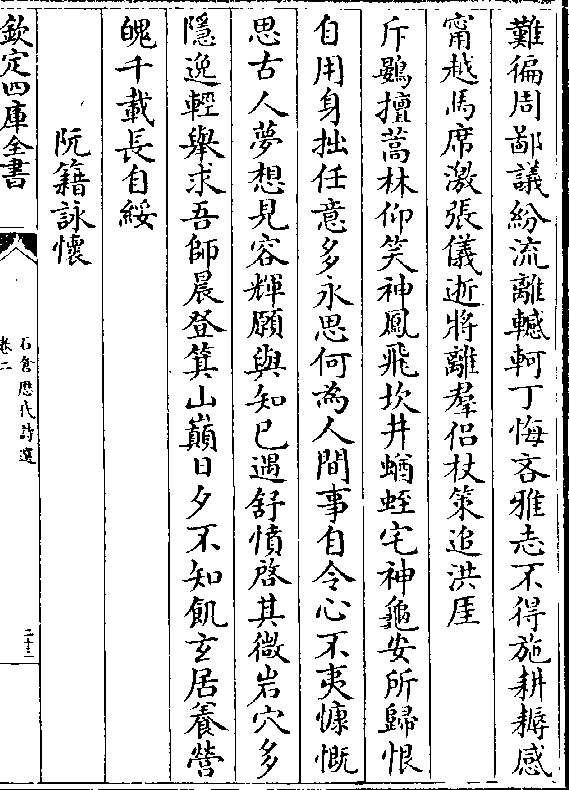 難徧周鄙議紛流離轗軻丁悔吝雅志不得施耕耨感
甯越馬席激張儀逝將離羣侶杖策追洪厓
斥鷃擅蒿林仰笑神鳳飛坎井蝤蛭宅神龜安所歸恨
自用身拙任意多永思何為人間事自令心不夷慷慨
思古人夢想見容輝願與知已遇舒憤啓其微岩穴多
隱逸輕舉求吾師晨登箕山巔日夕不知飢玄居養營
魄千載長自綏
阮籍詠懷
欽定四庫全書
石倉歷代詩選
卷二
二十三